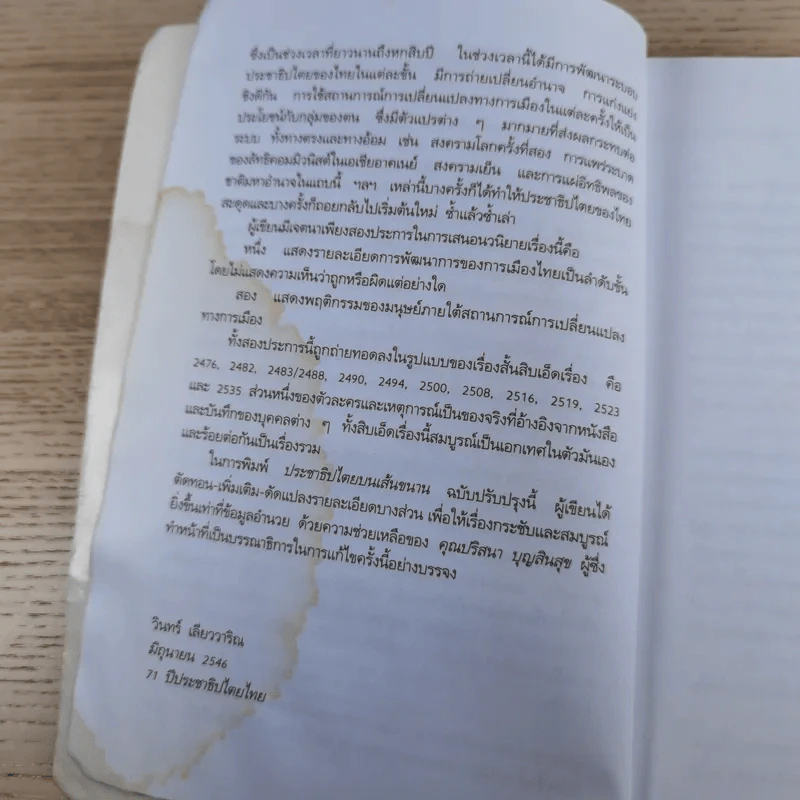 ซึ่งเป็นช่วงเวลาที่ยาวนานถึงหกสิบปี ในช่วงเวลานี้ได้มีการพัฒนาระบอบ
ประชาธิปไตยของไทยในแต่ละขั้น มีการถ่ายเปลี่ยนอำนาจ การแก่งแย่ง
ชิงดีกัน การใช้สถานการณ์การเปลี่ยนแปลงทางการเมืองในแต่ละครั้งให้เป็น
ประโยชน์กับกลุ่มของตน ซึ่งมีตัวแปรต่าง ๆ มากมายที่ส่งผลกระทบต่อ
ระบบ ทั้งทางตรงและทางอ้อม เช่น สงครามโลกครั้งที่สอง การแพร่ระบาด
ของลัทธิคอมมิวนิสต์ในเอเชียอาคเนย์ สงครามเย็น และการแผ่อิทธิพลของ
ชาติมหาอำนาจในแถบนี้ ฯลฯ เหล่านี้บางครั้งก็ได้ทำให้ประชาธิปไตยของไทย
สะดุดและบางครั้งก็ถอยกลับไปเริ่มต้นใหม่ ซ้ำแล้วซ้ำเล่า
ผู้เขียนมีเจตนาเพียงสองประการในการเสนอนวนิยายเรื่องนี้คือ
หนึ่ง แสดงรายละเอียดการพัฒนาการของการเมืองไทยเป็นลำดับขั้น
โดยไม่แสดงความเห็นว่าถูกหรือผิดแต่อย่างใด
สอง แสดงพฤติกรรมของมนุษย์ภายใต้สถานการณ์การเปลี่ยนแปลง
ทางการเมือง
ทั้งสองประการนี้ถูกถ่ายทอดลงในรูปแบบของเรื่องสั้นสิบเอ็ดเรื่อง คือ
2476, 2482, 2483/2488, 2490, 2494, 2500, 2508, 2516, 2519, 2523
และ 2535 ส่วนหนึ่งของตัวละครและเหตุการณ์เป็นของจริงที่อ้างอิงจากหนังสือ
และบันทึกของบุคคลต่าง ๆ ทั้งสิบเอ็ดเรื่องนี้สมบูรณ์เป็นเอกเทศในตัวมันเอง
และร้อยต่อกันเป็นเรื่องรวม
ในการพิมพ์ ประชาธิปไตยบนเส้นขนาน ฉบับปรับปรุงนี้ ผู้เขียนได้
ตัดทอน-เพิ่มเติม-ดัดแปลงรายละเอียดบางส่วน เพื่อให้เรื่องกระชับและสมบูรณ์
ยิ่งขึ้นเท่าที่ข้อมูลอำนวย ด้วยความช่วยเหลือของ คุณปริสนา บุญสินสุข ผู้ซึ่ง
ทำหน้าที่เป็นบรรณาธิการในการแก้ไขครั้งนี้อย่างบรรจง
วินทร์ เลียววาริณ
มิถุนายน 2546
71 ปีประชาธิปไตยไทย